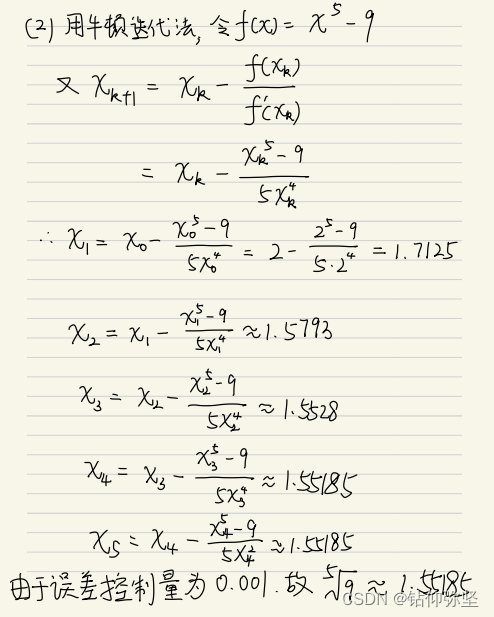 (2) 用牛顿迭代法, 令f(x) = x⁵ - 9
又 x_{k+1} = x_k - f(x_k) / f'(x_k)
= x_k - (x_k⁵ - 9) / (5x_k⁴)
∴ x₁ = x₀ - (x₀⁵ - 9) / (5x₀⁴) = 2 - (2⁵ - 9) / (5·2⁴) = 1.7125
x₂ = x₁ - (x₁⁵ - 9) / (5x₁⁴) ≈ 1.5793
x₃ = x₂ - (x₂⁵ - 9) / (5x₂⁴) ≈ 1.5528
x₄ = x₃ - (x₃⁵ - 9) / (5x₃⁴) ≈ 1.55185
x₅ = x₄ - (x₄⁵ - 9) / (5x₄²) ≈ 1.55185
由于误差控制量为 0.001. 故 ⁵√9 ≈ 1.55185
CSDN @钻仰弥坚